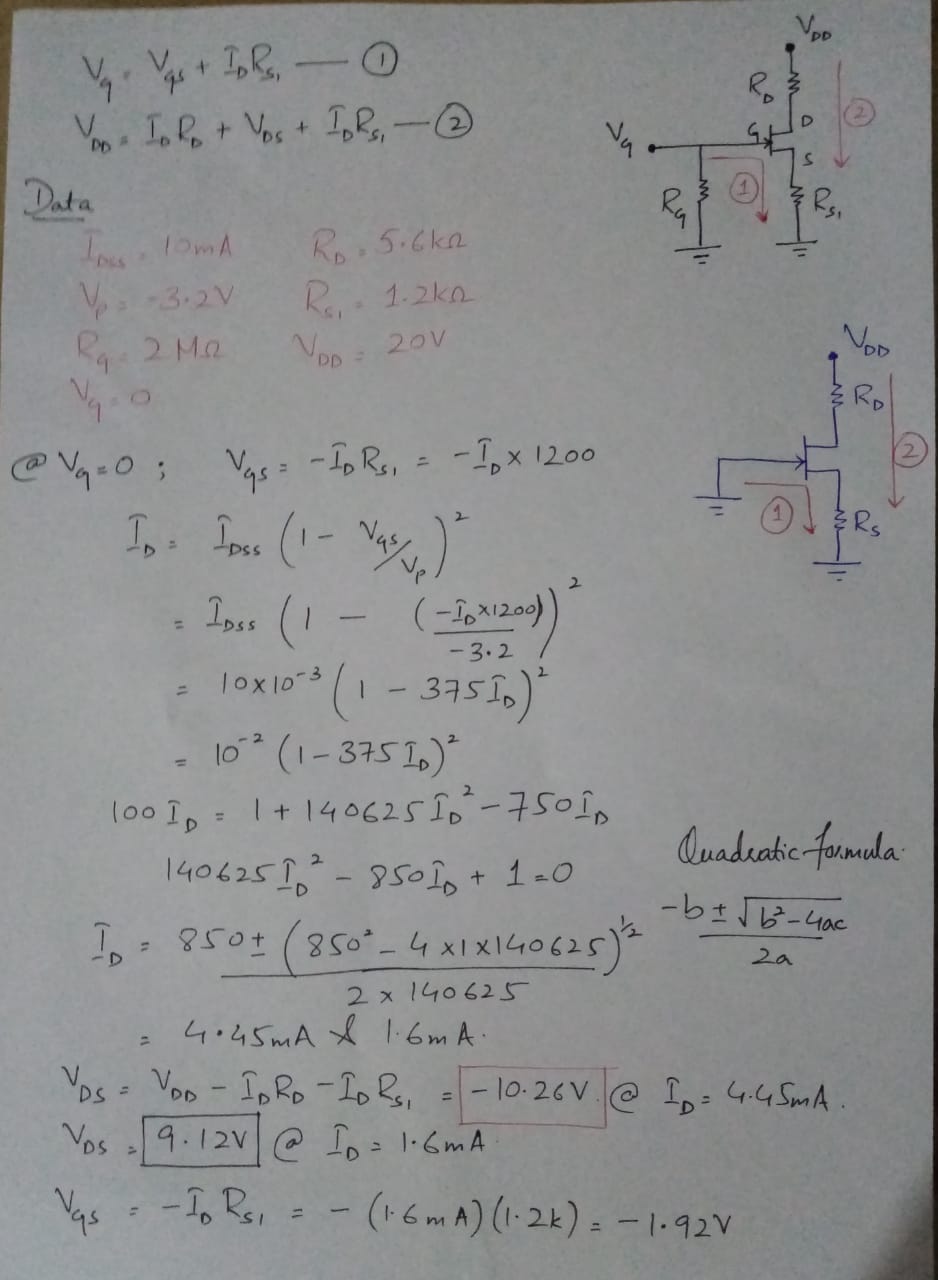 Vg = Vgs + IDRS1 — ①
VDD = IDRD + VDS + IDRS1 — ②
VDD
RD
D
②
Vg
G
S
①
Rg
RS1
Data
IDSS = 10mA RD = 5.6kΩ
Vp = -3.2V RS1 = 1.2kΩ
Rg = 2MΩ VDD = 20V
Vg = 0
VDD
RD
②
①
RS
@ Vg=0 ; Vgs = -IDRS1 = -ID x 1200
ID = IDSS (1 - Vgs/Vp)²
= IDSS (1 - (-ID x1200)/-3.2)²
= 10x10⁻³ (1 - 375ID)²
= 10⁻² (1-375 ID)²
100 ID = 1 + 140625 ID² - 750ID
140625 ID² - 850ID + 1 = 0
Quadratic formula
-b ± √b²-4ac
2a
ID = 850 ± (850² - 4 x1x140625)^½
2 x 140625
= 4.45mA & 1.6mA.
VDS = VDD - IDRD - IDRS1 = -10.26V. @ ID = 4.45mA.
VDS = 9.12V @ ID = 1.6mA
Vgs = -ID RS1 = - (1.6mA)(1.2k) = -1.92V